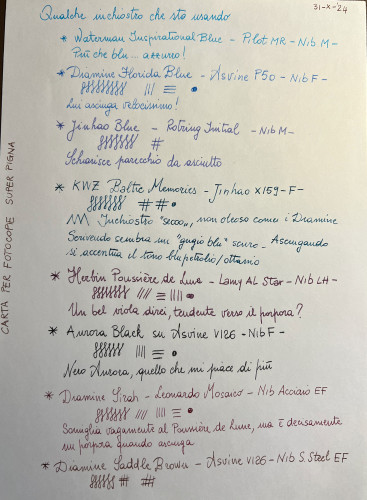 31-X-'24
Qualche inchiostro che sto usando
* Waterman Inspirational Blue - Pilot MR - Nib M -
Più che blu... azzurro!
* Diamine Florida Blue - Asvine P50 - Nib F -
Lui asciuga velocissimo!
* Jinhao Blue - Rotring Initial - Nib M -
Schiarisce parecchio da asciutto
* KWZ Baltic Memories - Jinhao X159 - F -
Inchiostro "secco", non oleoso come i Diamine
Scrivendo sembra un "grigio blu" scuro - Asciugando
si accentua il tono blu petrolio/ottanio
* Herbin Poussière de Lune - Lamy AL Star - Nib LH -
Un bel viola direi, tendente verso il porpora?
* Aurora Black su Asvine V126 - Nib F -
Nero Aurora, quello che mi piace di più
* Diamine Sirah - Leonardo Mosaico - Nib Acciaio EF
Somiglia vagamente al Poussière de Lune, ma è decisamente
un porpora quando asciuga
* Diamine Saddle Brown - Asvine V126 - Nib S. Steel EF
CARTA PER FOTOCOPIE SUPER PIGNA